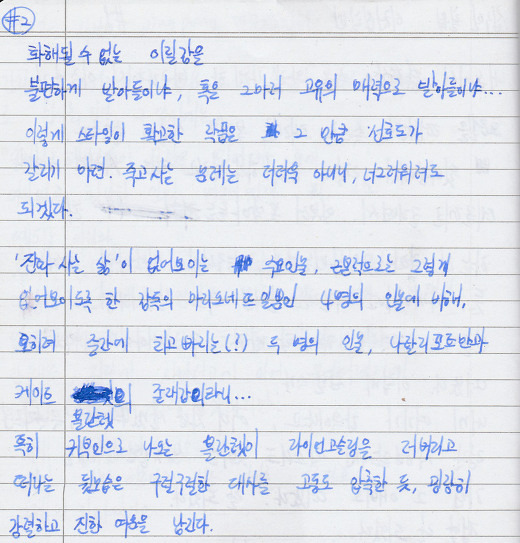 #2
화해될 수 없는 이질감을
불편하게 받아들이냐, 혹은 그마저 고유의 매력으로 받아들이냐...
이렇게 스타일이 확고한 작품은 그 만큼 선호도가
갈리기 마련. 주고 사는 문제는 더더욱 아니니, 너그러워려도
되겠다.
'진짜 사는 삶'이 없어보이는 주요인물, 근본적으로는 그렇게
없어보이도록 한 감독의 마리오네뜨일뿐인 4명의 인물에 비해,
오히려 중간에 타고버리는(?) 두 명의 인물, 나탈리포트만과
케이트 블란쳇의 존재감이라니...
특히 귀부인으로 나오는 블란쳇이 라이언고슬링을 저버리고
떠나는 뒷모습은 구럴구럴한 대사를 고통도 압축한 듯, 굉장히
강렬하고 진한 여운을 남긴다.